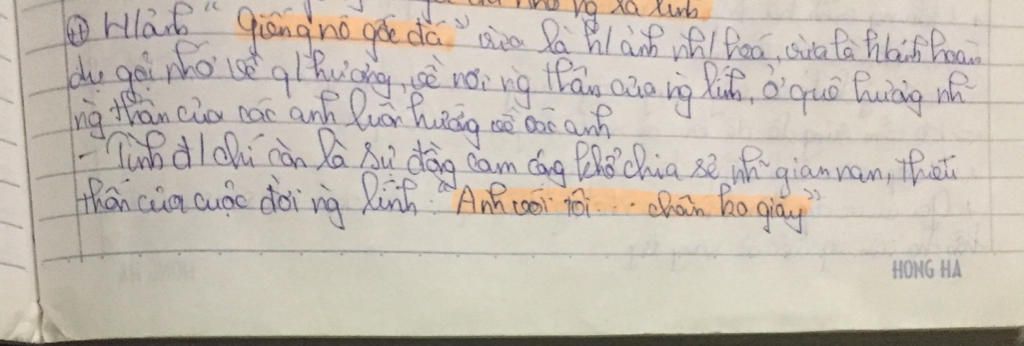 nhớ ng xa lính
⊕ H/ảnh "Giếng nc gốc đa" vừa là h/ảnh nh/hoá, vừa là h/ảnh hoán
dụ gợi nhớ về q/hương, về nơi ng thân của ng lính, ở quê hương nh~
ng thân của các anh luôn hướng về các anh
- Tình đ/chí còn là sự đồng cam cộng khổ chia sẻ nh~ gian nan, thiếu
thốn của cuộc đời ng lính: "Anh với tôi... chân ko giày"
HONG HA